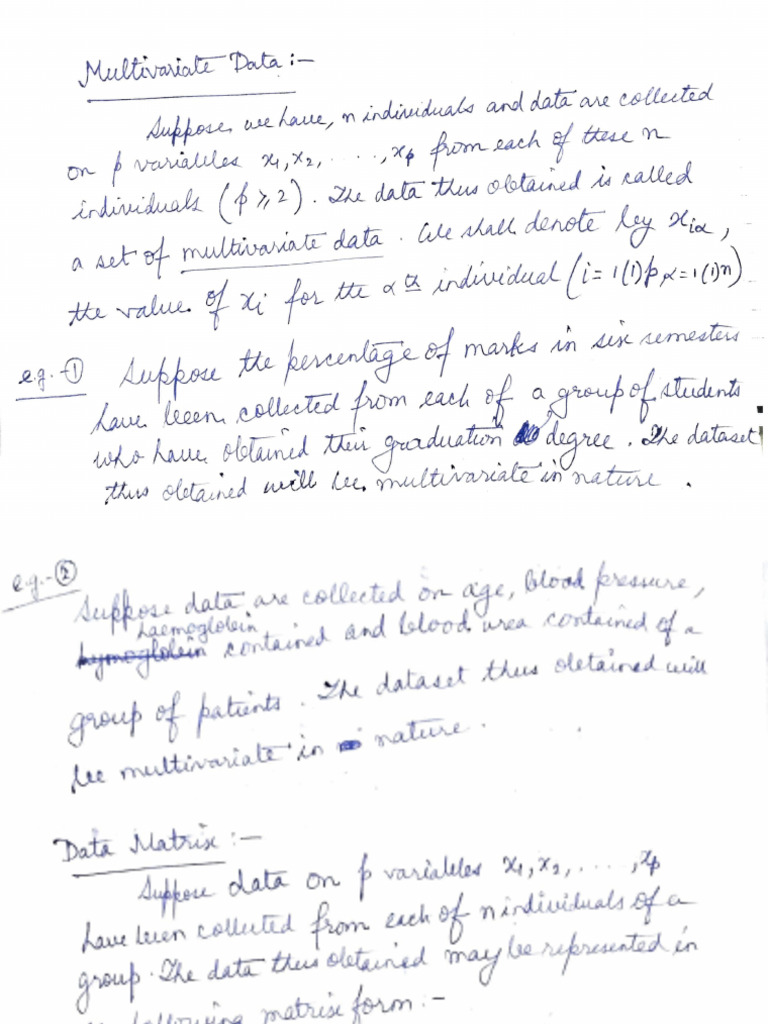 Multivariate Data :-
Suppose, we have, n individuals and data are collected
on p variables x₁, x₂, ....., xₚ from each of these n
individuals (p ≥ 2). The data thus obtained is called
a set of multivariate data. We shall denote by xᵢα,
the value of xᵢ for the α th individual (i = 1(1)p, α = 1(1)n)
e.g. - ① Suppose the percentage of marks in six semesters
have been collected from each of a group of students
who have obtained their graduation degree. The dataset
thus obtained will be multivariate in nature.
e.g. - ② Suppose data are collected on age, blood pressure,
haemoglobin
hymoglobin contained and blood urea contained of a
group of patients. The dataset thus obtained will
be multivariate in nature.
Data Matrix :-
Suppose data on p variables x₁, x₂, ....., xₚ
have been collected from each of n individuals of a
group. The data thus obtained may be represented in
following matrix form :-